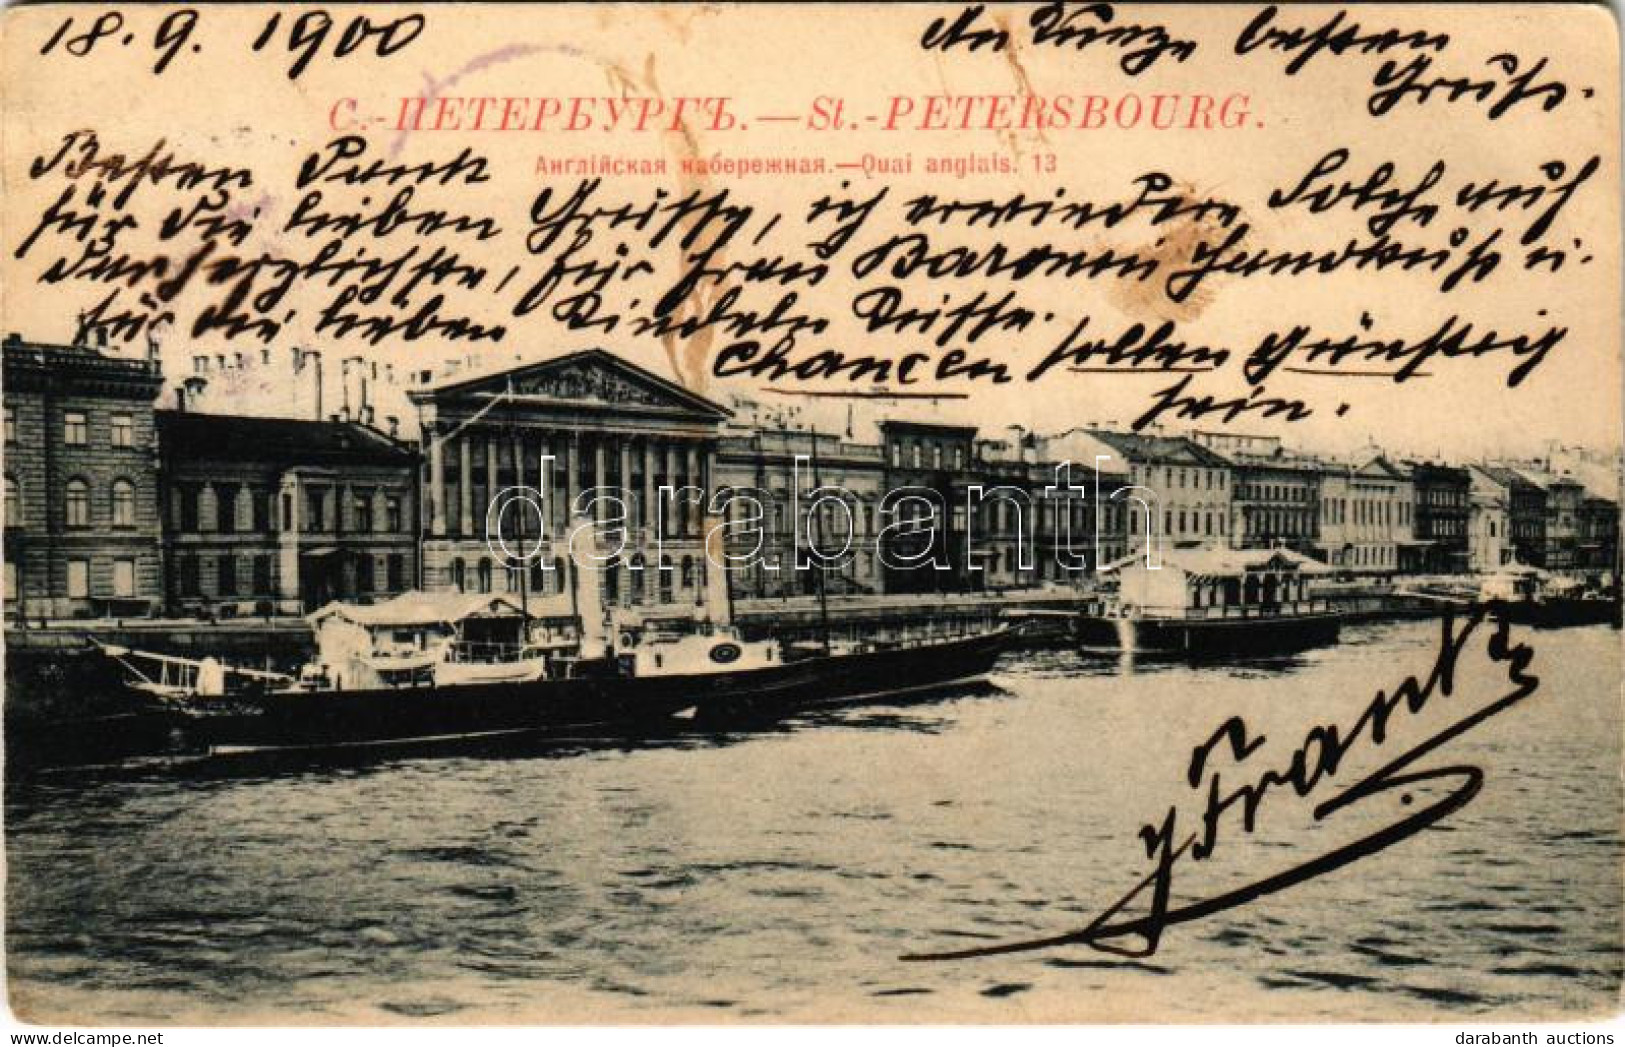 18. 9. 1900
An Kunze besten
Gruss.
С.-ПЕТЕРБУРГЪ.—St.-PETERSBOURG.
Англійская набережная.—Quai anglais. 13
Besten Dank
für die lieben Grüsse, ich erwiedere Solche auf
herzlichste, für Frau Baronin Handkuss u.
für die lieben Kindeln Küsse.
Chancen sollen günstig
sein.
Frank
darabanth
darabanth auctions